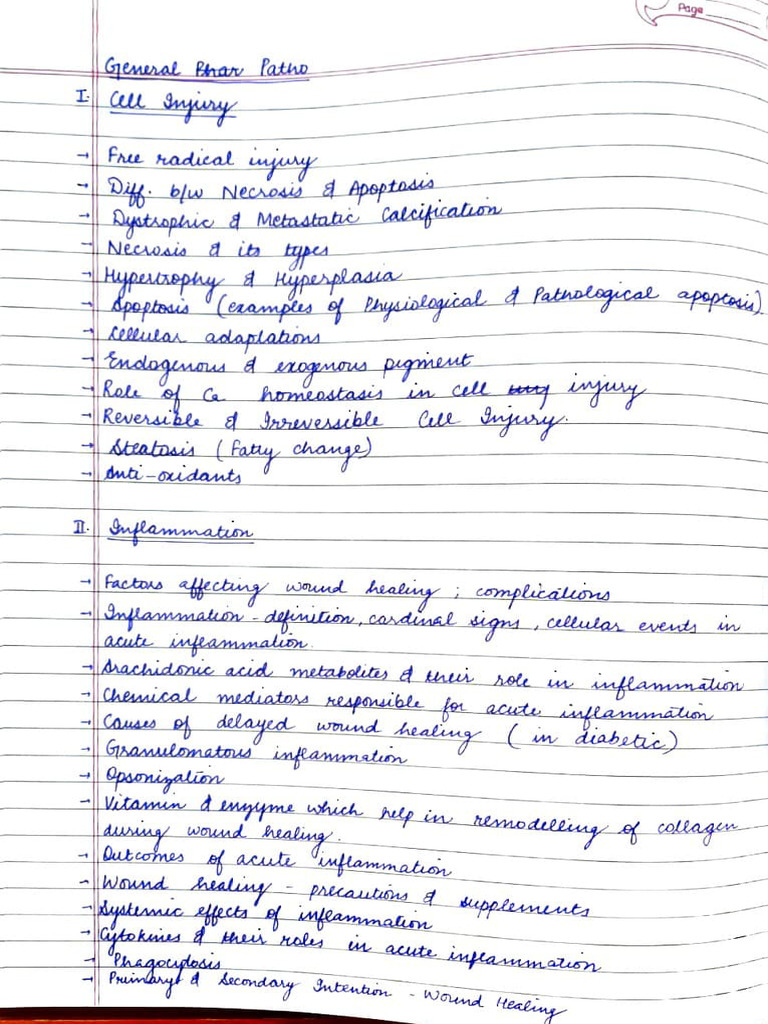 Page
General Phar Patho
I. Cell Injury
→ Free radical injury
→ Diff. b/w Necrosis & Apoptosis
→ Dystrophic & Metastatic Calcification
→ Necrosis & its types
→ Hypertrophy & Hyperplasia
→ Apoptosis (examples of Physiological & Pathological apoptosis)
→ Cellular adaptations
→ Endogenous & exogenous pigment
→ Role of Ca homeostasis in cell injury
→ Reversible & Irreversible Cell Injury.
→ Steatosis (Fatty change)
→ Anti-oxidants
II. Inflammation
→ Factors affecting wound healing ; complications
→ Inflammation - definition, cardinal signs, cellular events in
acute inflammation.
→ Arachidonic acid metabolites & their role in inflammation
→ Chemical mediators responsible for acute inflammation
→ Causes of delayed wound healing (in diabetic)
→ Granulomatous inflammation
→ Opsonization
→ Vitamin & enzyme which help in remodelling of collagen
during wound healing.
→ Outcomes of acute inflammation
→ Wound healing - precautions & supplements
→ Systemic effects of inflammation
→ Cytokines & their roles in acute inflammation
→ Phagocytosis
→ Primary & Secondary Intention - Wound Healing